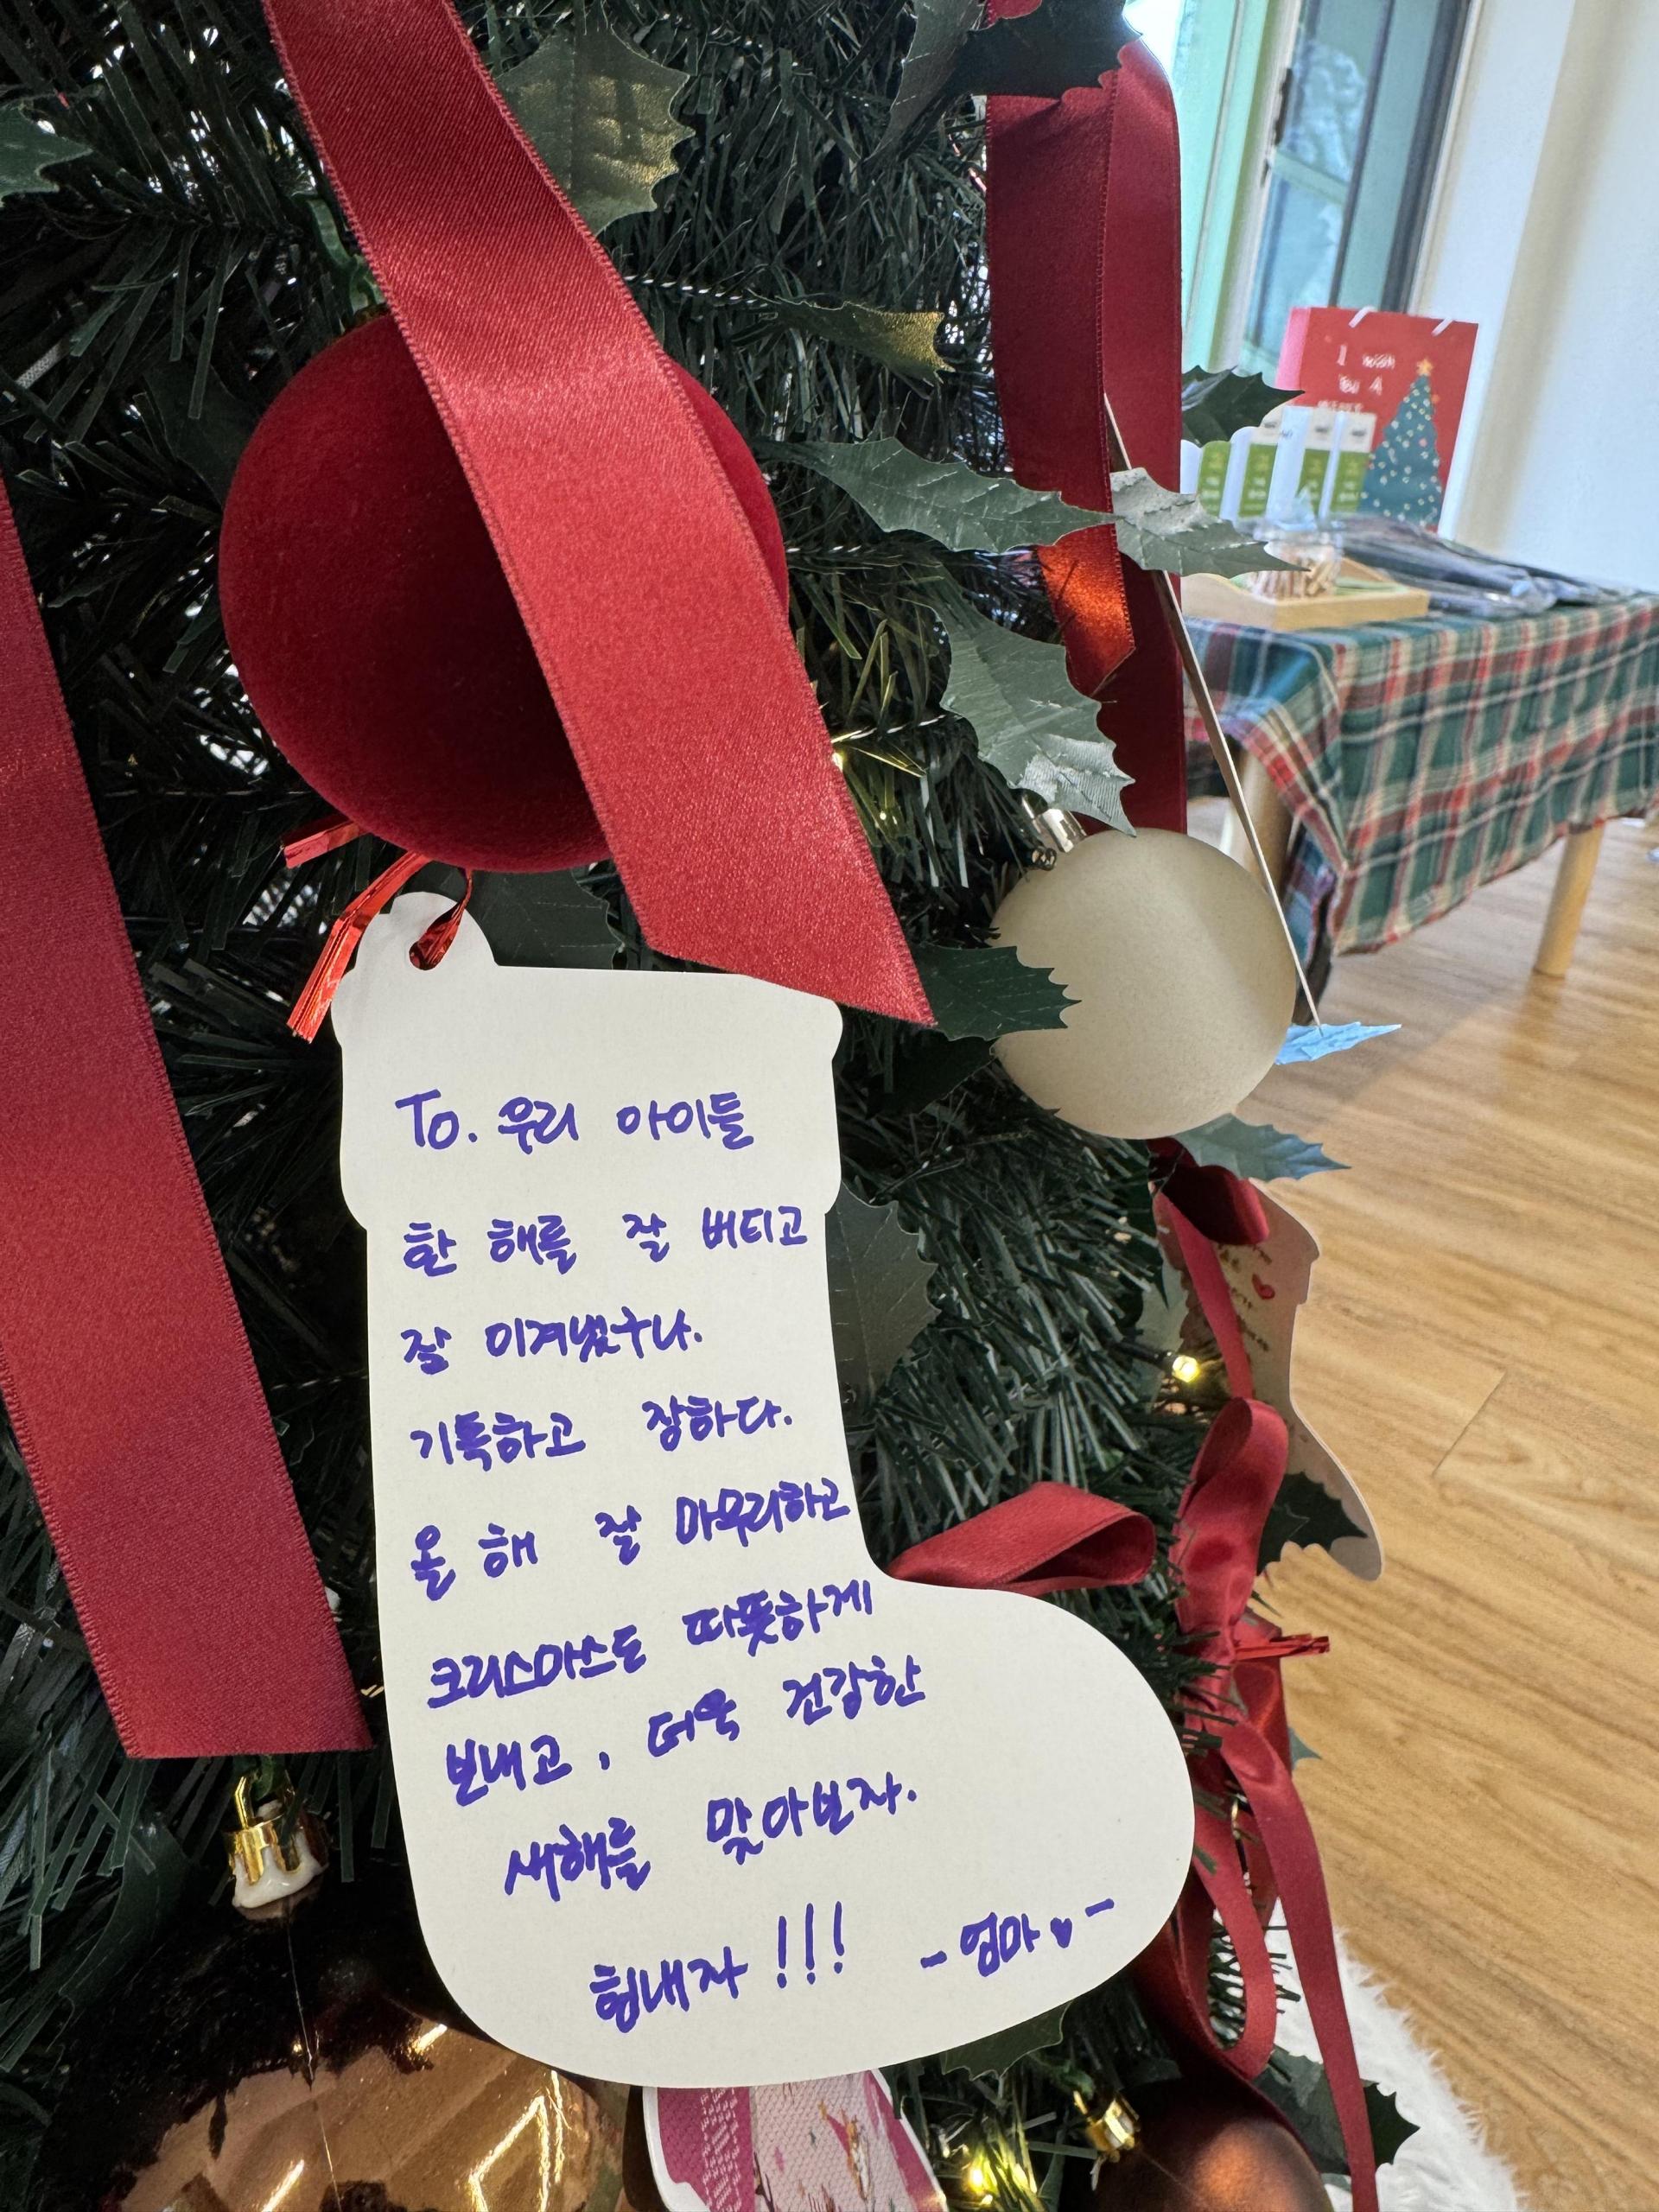 I wish
You A
To. 우리 아이들
한 해를 잘 버티고
잘 이겨냈구나.
기특하고 장하다.
올 해 잘 마무리하고
크리스마스도 따뜻하게
보내고, 더욱 건강한
새해를 맞아보자.
힘내자!!! -엄마♥-